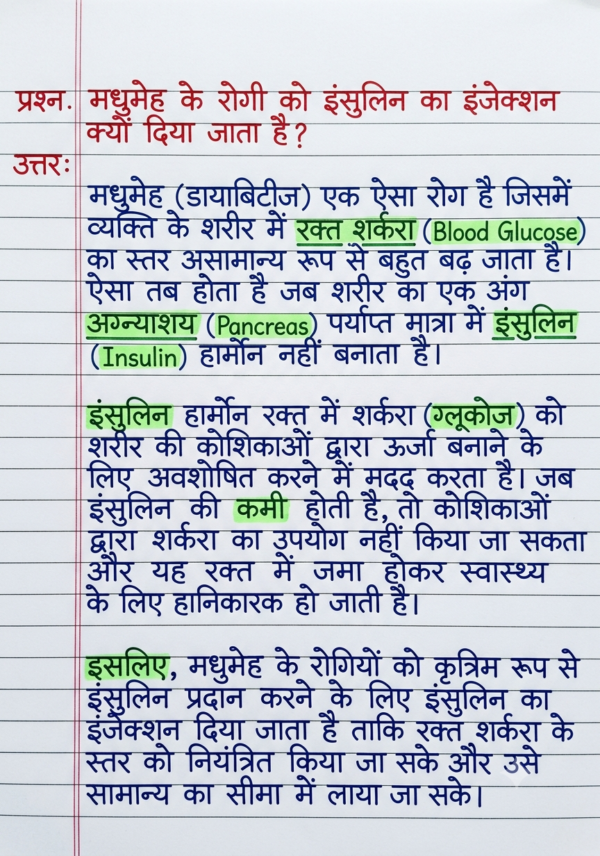 प्रश्न. मधुमेह के रोगी को इंसुलिन का इंजेक्शन
क्यों दिया जाता है?
उत्तर:
मधुमेह (डायाबिटीज) एक ऐसा रोग है जिसमें
व्यक्ति के शरीर में रक्त शर्करा (Blood Glucose)
का स्तर असामान्य रूप से बहुत बढ़ जाता है।
ऐसा तब होता है जब शरीर का एक अंग
अग्न्याशय (Pancreas) पर्याप्त मात्रा में इंसुलिन
(Insulin) हार्मोन नहीं बनाता है।
इंसुलिन हार्मोन रक्त में शर्करा (ग्लूकोज) को
शरीर की कोशिकाओं द्वारा ऊर्जा बनाने के
लिए अवशोषित करने में मदद करता है। जब
इंसुलिन की कमी होती है, तो कोशिकाओं
द्वारा शर्करा का उपयोग नहीं किया जा सकता
और यह रक्त में जमा होकर स्वास्थ्य
के लिए हानिकारक हो जाती है।
इसलिए, मधुमेह के रोगियों को कृत्रिम रूप से
इंसुलिन प्रदान करने के लिए इंसुलिन का
इंजेक्शन दिया जाता है ताकि रक्त शर्करा के
स्तर को नियंत्रित किया जा सके और उसे
सामान्य का सीमा में लाया जा सके।